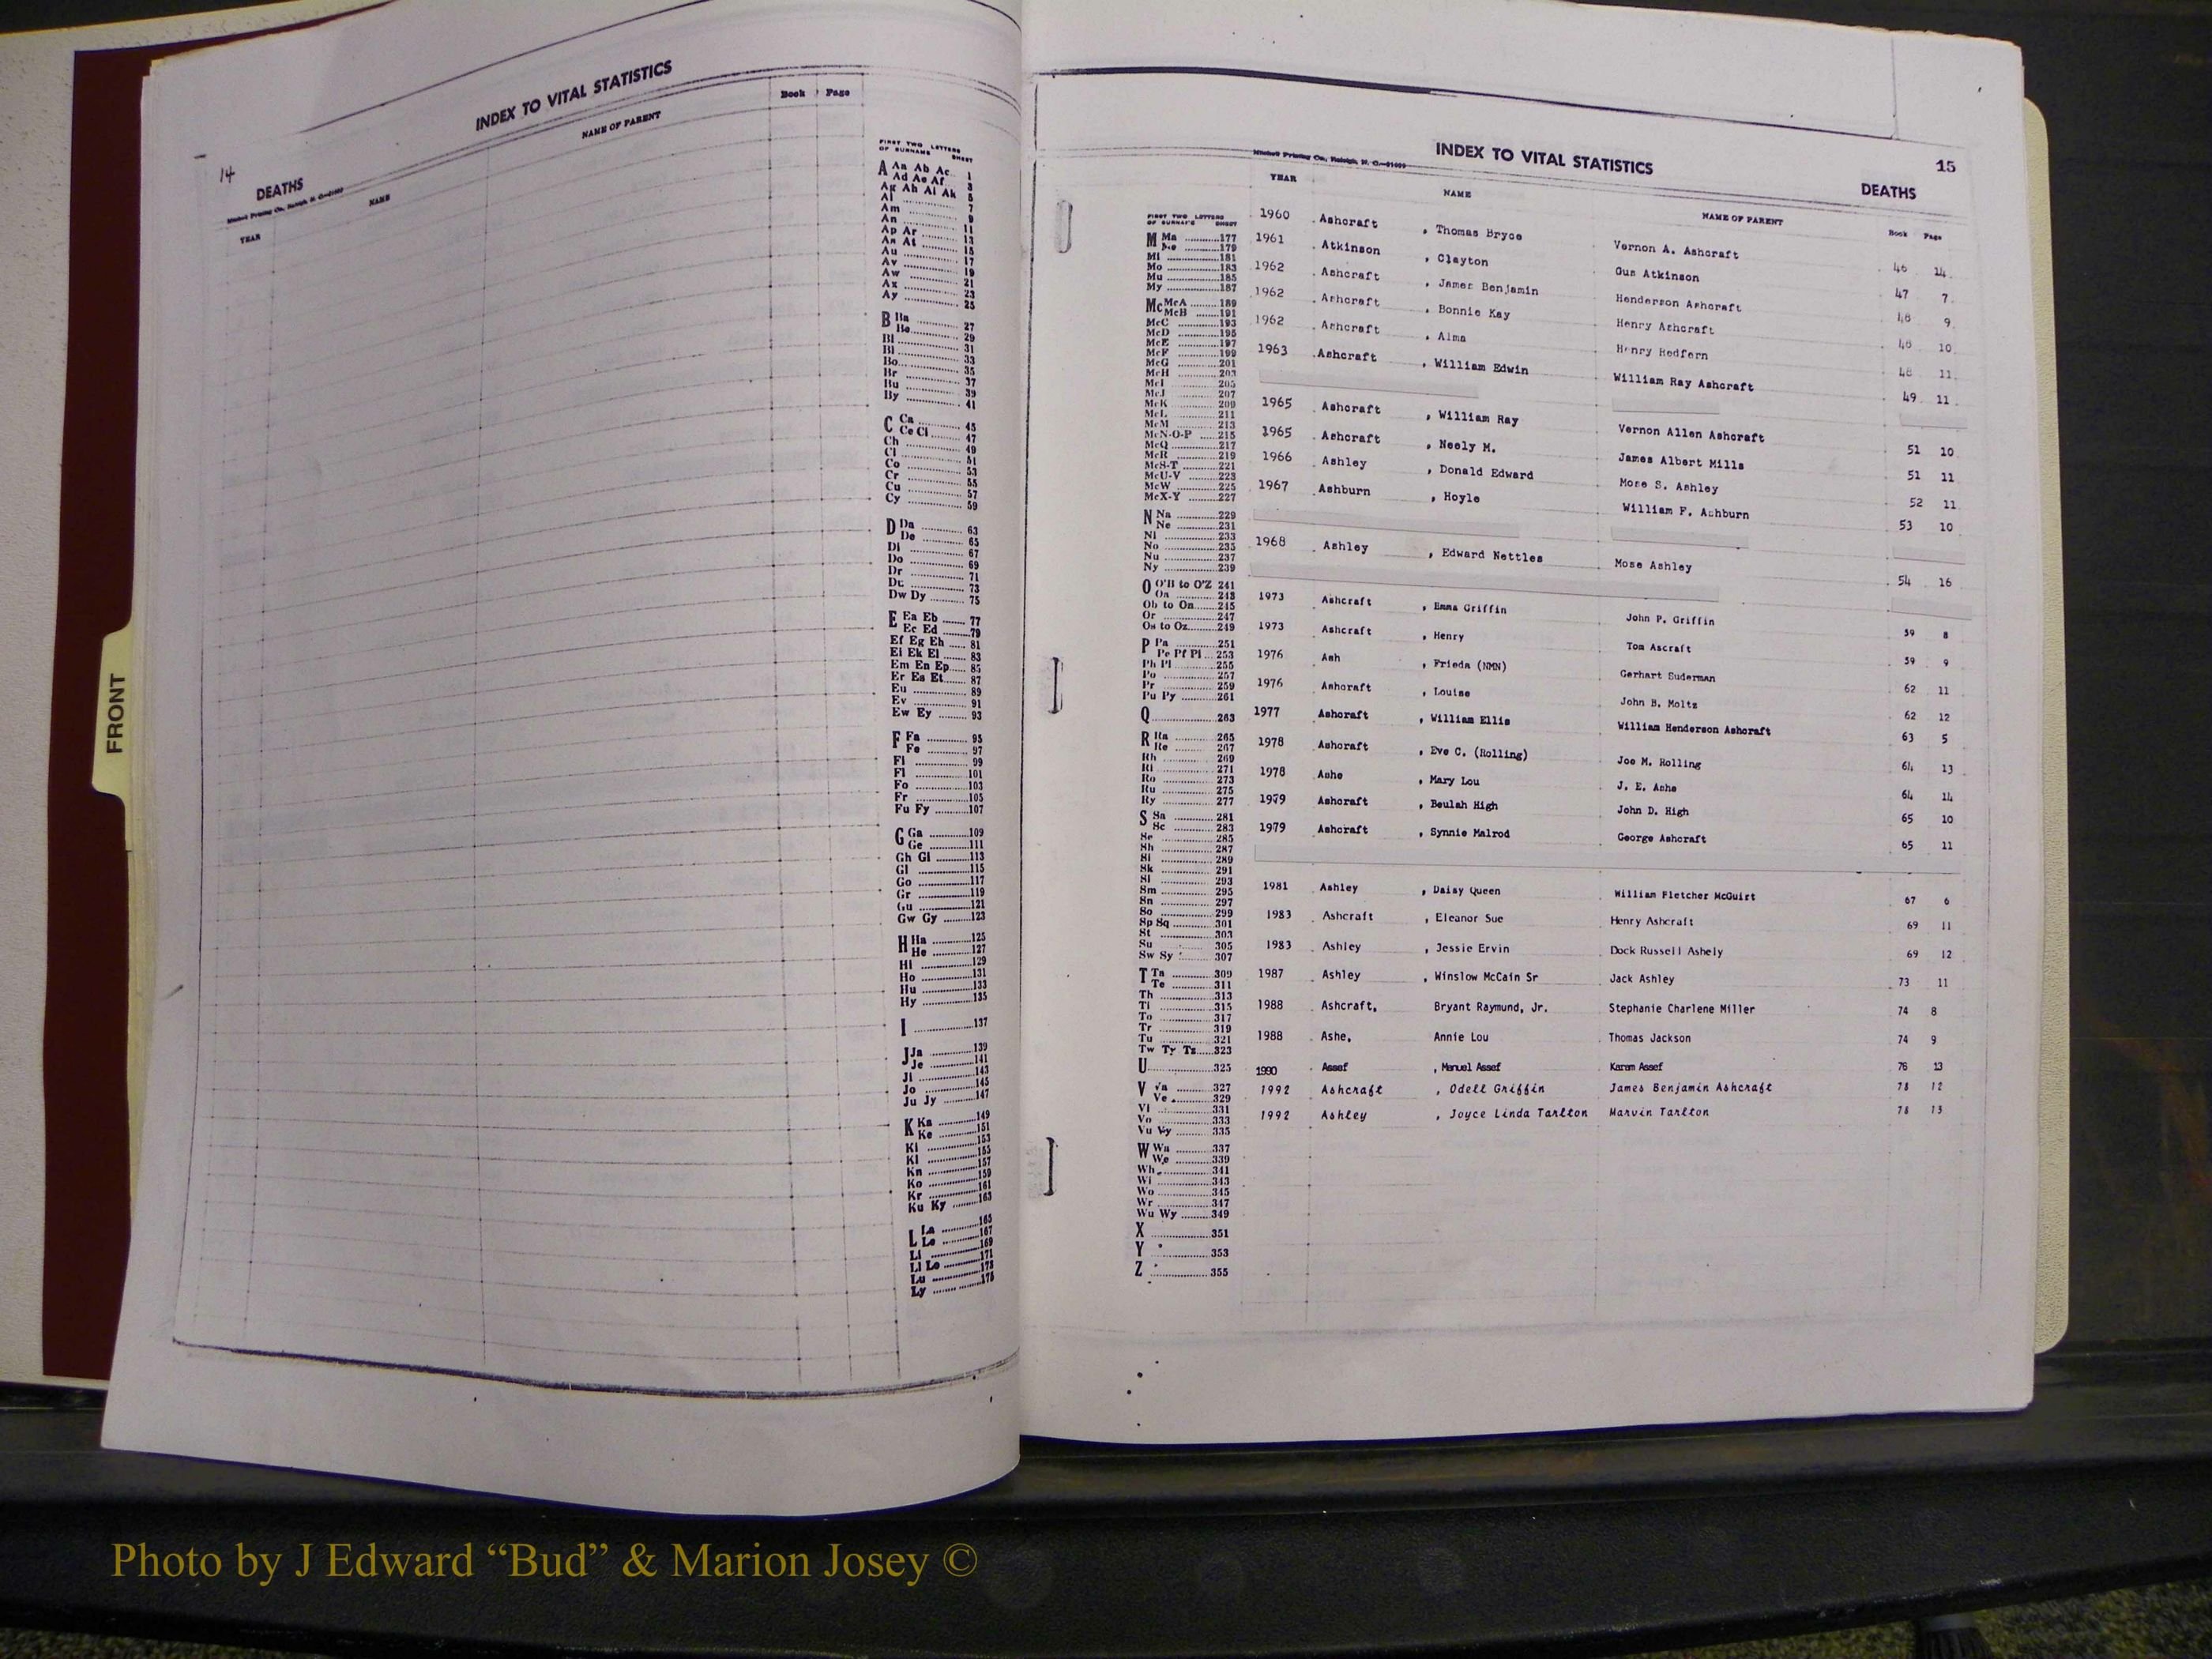 14
INDEX TO VITAL STATISTICS
DEATHS
Mitchell Printing Co., Raleigh, N. C.
YEAR
NAME
NAME OF PARENT
Book Page
FIRST TWO LETTERS
OF SURNAME SHEET
A Aa Ab Ac 1
Ad Ae Af 3
Ag Ah Ai Ak 5
Al 7
Am 9
An 11
Ap Ar 13
As At 15
Au 17
Av 19
Aw 21
Ax 23
Ay 25
B Ba 27
Be 29
Bi 31
Bl 33
Bo 35
Br 37
Bu 39
By 41
C Ca 45
Ce Ci 47
Ch 49
Cl 51
Co 53
Cr 55
Cu 57
Cy 59
D Da 63
De 65
Di 67
Do 69
Dr 71
Du 73
Dw Dy 75
E Ea Eb 77
Ec Ed 79
Ef Eg Eh 81
Ei Ek El 83
Em En Ep 85
Er Es Et 87
Eu 89
Ev 91
Ew Ey 93
F Fa 95
Fe 97
Fi 99
Fl 101
Fo 103
Fr 105
Fu Fy 107
G Ga 109
Ge 111
Gh Gi 113
Gl 115
Go 117
Gr 119
Gu 121
Gw Gy 123
H Ha 125
He 127
Hi 129
Ho 131
Hu 133
Hy 135
I 137
J Ja 139
Je 141
Ji 143
Jo 145
Ju Jy 147
K Ka 149
Ke 151
Ki 153
Kl 155
Kn 157
Ko 159
Kr 161
Ku Ky 163
L La 165
Le 167
Li 169
Ll Lo 171
Lu 173
Ly 175
INDEX TO VITAL STATISTICS
15
Mitchell Printing Co., Raleigh, N. C.
DEATHS
YEAR
NAME
NAME OF PARENT
Book Page
FIRST TWO LETTERS
OF SURNAME SHEET
M Ma 177
Me 179
Mi 181
Mo 183
Mu 185
My 187
Mc McA 189
McB 191
McC 193
McD 195
McE 197
McF 199
McG 201
McH 203
McI 205
McJ 207
McK 209
McL 211
McM 213
McN-O-P 215
McQ 217
McR 219
McS-T 221
McU-V 223
McW 225
McX-Y 227
N Na 229
Ne 231
Ni 233
No 235
Nu 237
Ny 239
O O'B to O'Z 241
Oa 243
Ob to On 245
Or 247
Os to Oz 249
P Pa 251
Pe Pf Pi 253
Ph Pl 255
Po 257
Pr 259
Pu Py 261
Q 263
R Ra 265
Re 267
Rh 269
Ri 271
Ro 273
Ru 275
Ry 277
S Sa 281
Sc 283
Se 285
Sh 287
Si 289
Sk 291
Sl 293
Sm 295
Sn 297
So 299
Sp Sq 301
St 303
Su 305
Sw Sy 307
T Ta 309
Te 311
Th 313
Ti 315
To 317
Tr 319
Tu 321
Tw Ty Tz 323
U 325
V Va 327
Ve 329
Vi 331
Vo 333
Vu Vy 335
W Wa 337
We 339
Wh 341
Wi 343
Wo 345
Wr 347
Wu Wy 349
X 351
Y 353
Z 355
1960 Ashcraft , Thomas Bryce Vernon A. Ashcraft 46 14
1961 Atkinson , Clayton Gus Atkinson 47 7
1962 Ashcraft , James Benjamin Henderson Ashcraft 48 9
1962 Ashcraft , Bonnie Kay Henry Ashcraft 48 10
1962 Ashcraft , Alma Henry Redfern 48 11
1963 Ashcraft , William Edwin William Ray Ashcraft 49 11
1965 Ashcraft , William Ray Vernon Allen Ashcraft 51 10
1965 Ashcraft , Neely M. James Albert Mills 51 11
1966 Ashley , Donald Edward Mose S. Ashley 52 11
1967 Ashburn , Hoyle William F. Ashburn 53 10
1968 Ashley , Edward Nettles Mose Ashley 54 16
1973 Ashcraft , Emma Griffin John P. Griffin 59 8
1973 Ashcraft , Henry Tom Ascraft 59 9
1976 Ash , Frieda (NMN) Gerhart Suderman 62 11
1976 Ashcraft , Louise John B. Moltz 62 12
1977 Ashcraft , William Ellis William Henderson Ashcraft 63 5
1978 Ashcraft , Eve C. (Rolling) Joe M. Rolling 64 13
1978 Ashe , Mary Lou J. E. Ashe 64 14
1979 Ashcraft , Beulah High John D. High 65 10
1979 Ashcraft , Synnie Malrod George Ashcraft 65 11
1981 Ashley , Daisy Queen William Fletcher McGuirt 67 6
1983 Ashcraft , Eleanor Sue Henry Ashcraft 69 11
1983 Ashley , Jessie Ervin Dock Russell Ashely 69 12
1987 Ashley , Winslow McCain Sr Jack Ashley 73 11
1988 Ashcraft, Bryant Raymund, Jr. Stephanie Charlene Miller 74 8
1988 Ashe, Annie Lou Thomas Jackson 74 9
1990 Assef , Manuel Assef Karam Assef 76 13
1992 Ashcraft , Odell Griffin James Benjamin Ashcraft 78 12
1992 Ashley , Joyce Linda Tarlton Marvin Tarlton 78 13
FRONT
Photo by J Edward “Bud” & Marion Josey ©